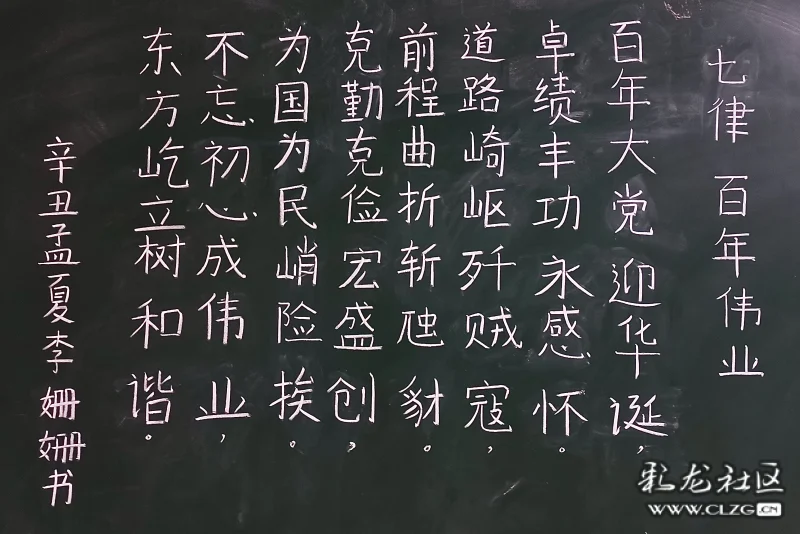 七律 百年伟业
百年大党迎华诞，
卓绩丰功永感怀。
道路崎岖歼贼寇，
前程曲折斩虺豺。
克勤克俭宏盛创，
为国为民峭险挨。
不忘初心成伟业，
东方屹立树和谐。
辛丑孟夏李姗姗书
彩龙社区
WWW.CLZG.CN